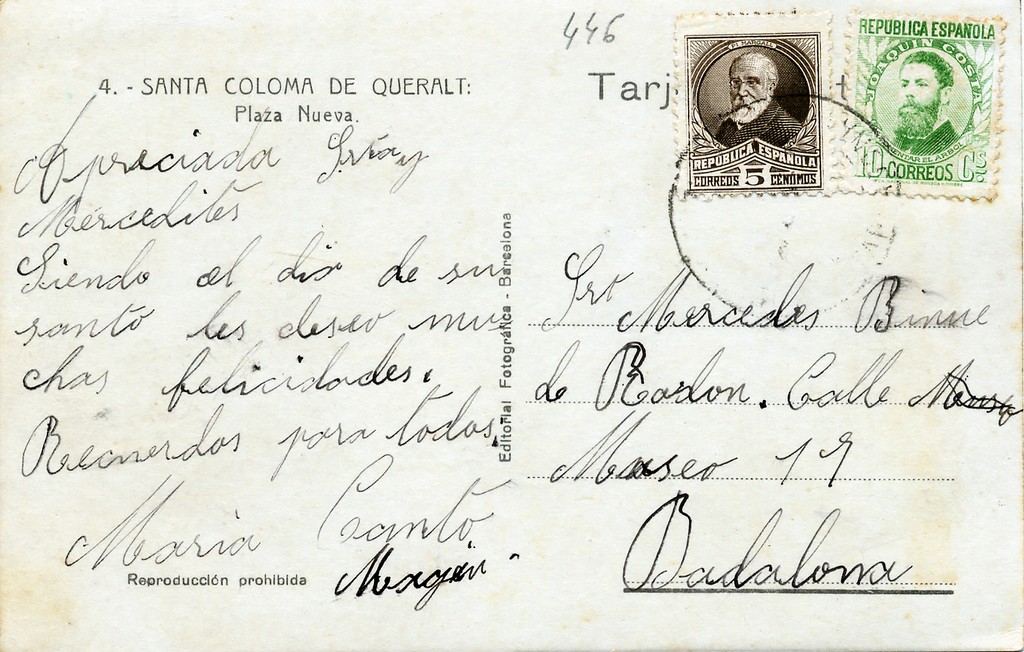 446
4. - SANTA COLOMA DE QUERALT:
Plaza Nueva.
Tarj t
PI MARGALL
REPÚBLICA ESPAÑOLA
CORREOS 5 CENTIMOS
REPUBLICA ESPAÑOLA
JOAQUIN COSTA
10 CORREOS Cs
Apreciada Srta y
Mercedites
Siendo el dia de su
santo les deseo mu
chas felicidades.
Recuerdos para todos.
Maria Canto
Magin
Reproducción prohibida
Editorial Fotográfica - Barcelona
Mercedes
de Calle
Museo 17
Badalona